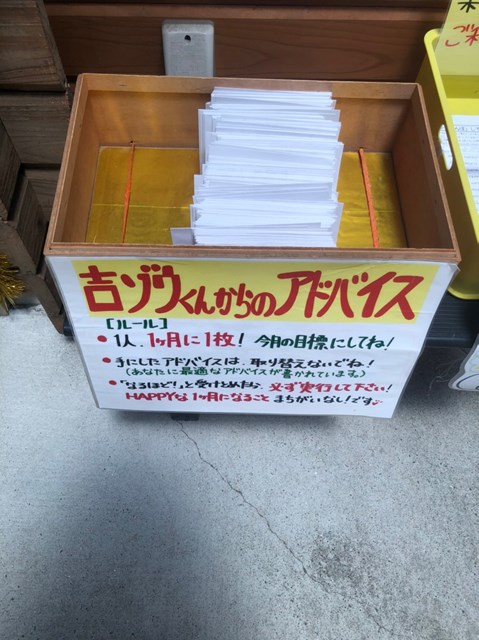 吉ゾウくんからのアドバイス
[ルール]
• 1人、1ヶ月に1枚！ 今月の目標にしてね！
• 手にしたアドバイスは、取り替えないでね！
(あなたに最適なアドバイスが書かれています♪)
• 「なるほど!」と受けとめたら、必ず実行して下さい！
HAPPYな1ヶ月になること まちがいなし！です